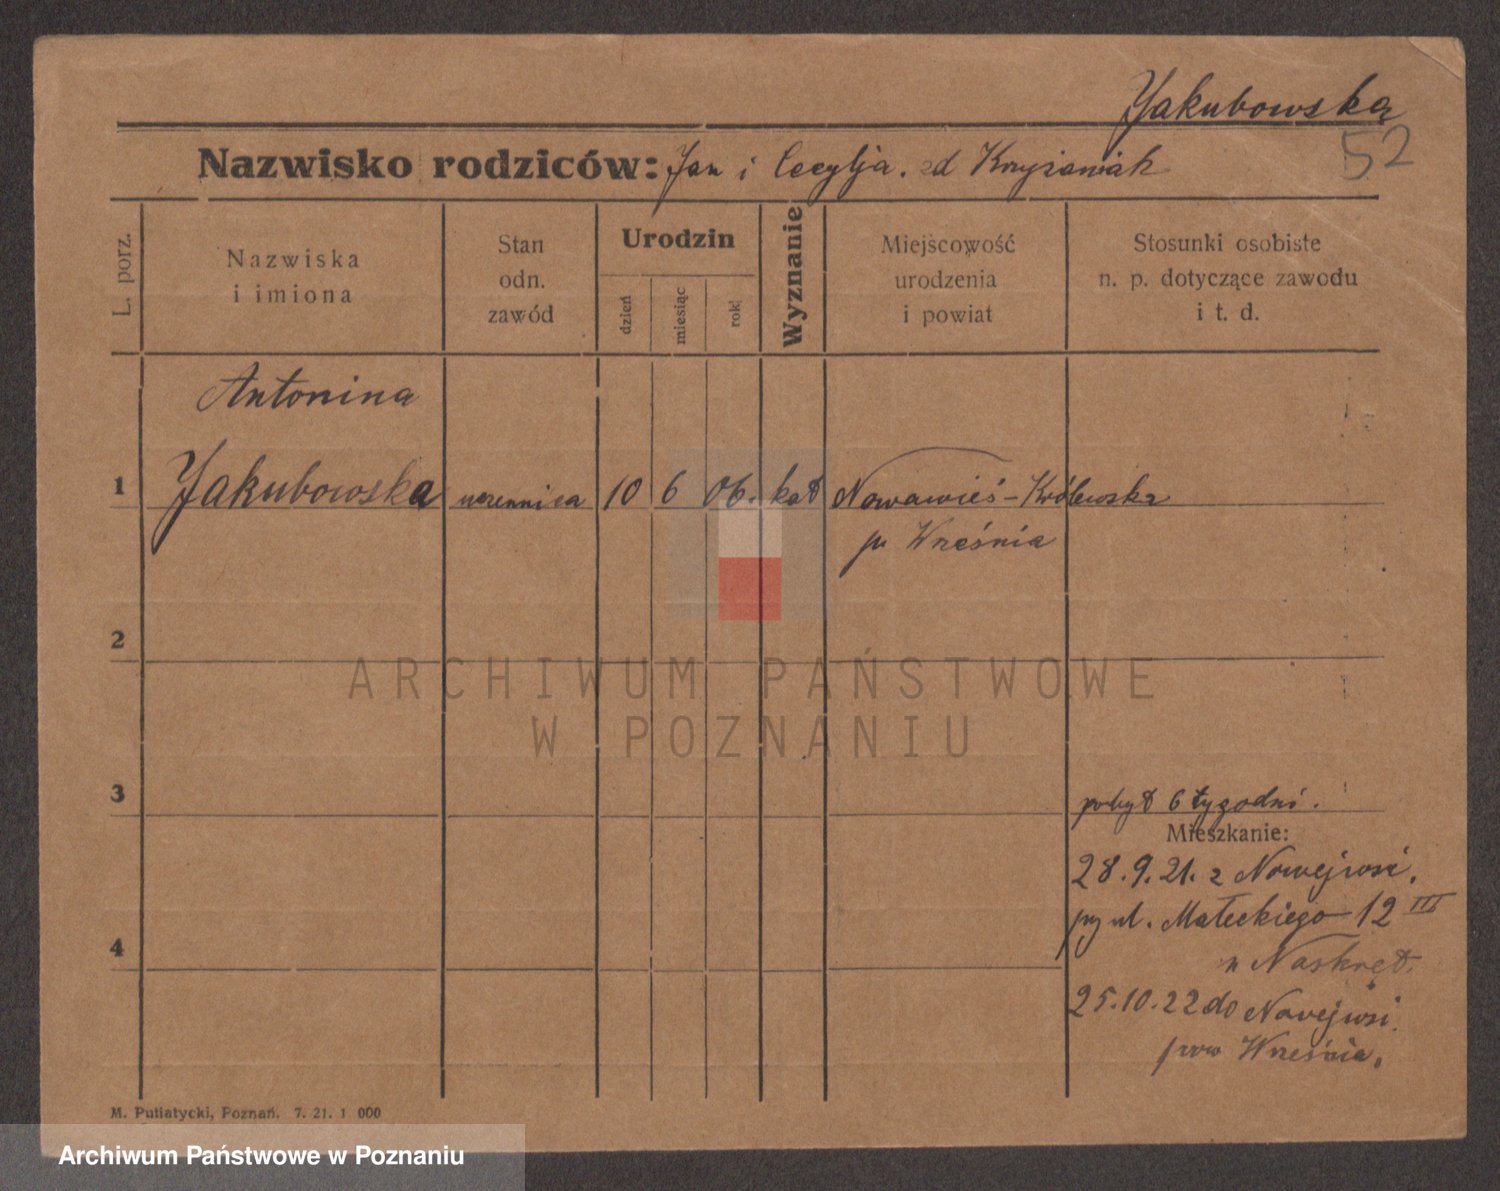 Jakubowska
52
Nazwisko rodziców: Jan i Cecylja. zd Krzyżaniak
L. porz.
Nazwiska
i imiona
Stan
odn.
zawód
Urodzin
dzień
miesiąc
rok
Wyznanie
Miejscowość
urodzenia
i powiat
Stosunki osobiste
n. p. dotyczące zawodu
i t. d.
Antonina
1 Jakubowska uczennica 10 6 06. kat Nowawieś-Królewska
p. Września
2
3
pobyt 6 tygodni.
Mieszkanie:
28.9.21. z Nowejwsi.
przy ul. Małeckiego 12 III
4
u Naskręt.
25.10.22 do Nowejwsi
pow Września.
M. Putiatycki, Poznań. 7. 21. 1 000
ARCHIWUM PAŃSTWOWE
W POZNANIU
Archiwum Państwowe w Poznaniu